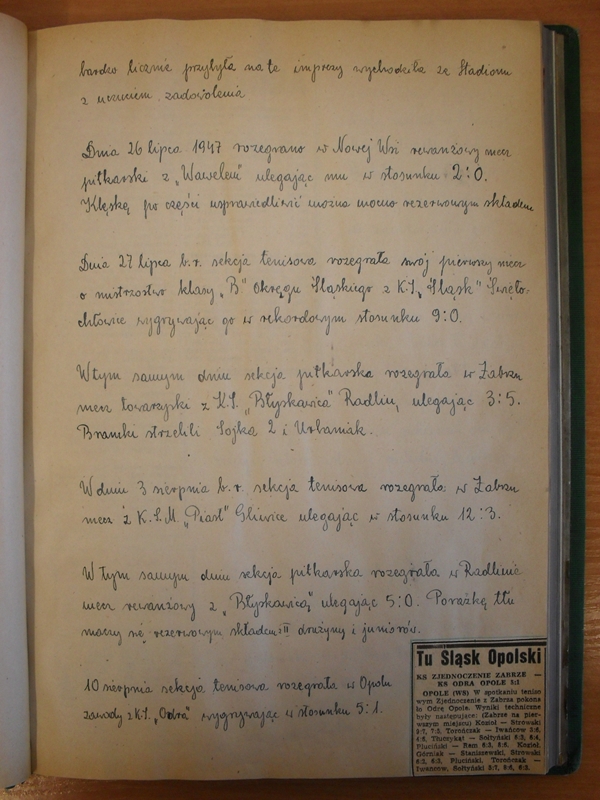 bardzo licznie przybyła na te imprezy wychodziła ze Stadionu
z uczuciem zadowolenia
Dnia 26 lipca 1947 rozegrano w Nowej Wsi rewanżowy mecz
piłkarski z „Wawelem" ulegając mu w stosunku 2:0.
Klęskę po części usprawiedliwić można mocno rezerwowym składem
Dnia 27 lipca b.r. sekcja tenisowa rozegrała swój pierwszy mecz
o mistrzostwo klasy „B" Okręgu Śląskiego z K.S. „Śląsk" Święto-
chłowice wygrywając go w rekordowym stosunku 9:0.
W tym samym dniu sekcja piłkarska rozegrała w Zabrzu
mecz towarzyski z K.S. „Błyskawica" Radlin, ulegając 3:5.
Bramki strzelili Sojka 2 i Urbaniak.
W dniu 3 sierpnia b.r. sekcja tenisowa rozegrała w Zabrzu
mecz z K.S.M. „Piast" Gliwice ulegając w stosunku 12:3.
W tym samym dniu sekcja piłkarska rozegrała w Radlinie
mecz rewanżowy z „Błyskawicą" ulegając 5:0. Porażkę tłu
maczy się rezerwowym składem: II drużyny i juniorów.
10 sierpnia sekcja tenisowa rozegrała w Opolu
zawody z K.S. „Odra" wygrywając w stosunku 5:1.
Tu Śląsk Opolski
KS ZJEDNOCZENIE ZABRZE —
KS ODRA OPOLE 5:1
OPOLE (WS) W spotkaniu teniso
wym Zjednoczenie z Zabrza pokona
ło Odrę Opole. Wyniki techniczne
były następujące: (Zabrze na pier-
wszym miejscu) Kozioł — Strowski
9:7, 7:3, Torończak — Iwańcow 3:6,
4:6, Tłuczykat — Sołtyński 6:3, 6:4,
Pluciński — Bem 6:3, 8:6. Kozioł,
Górniak — Staniszewski, Strowski
6:2, 6:3. Pluciński, Torończak —
Iwańcow, Sołtyński 5:7, 8:6, 6:3.